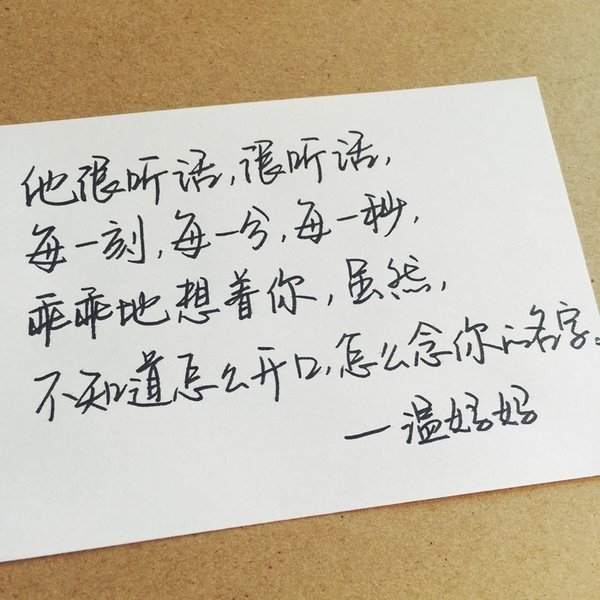 他很听话,很听话,
每一刻,每一分,每一秒,
乖乖地想着你,虽然,
不知道怎么开口,怎么念你的名字。
—温妤妤